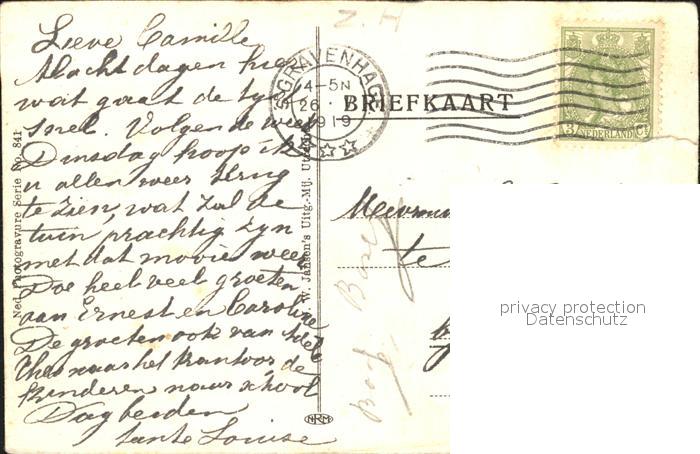 Z. H
Lieve Camille
Nacht dagen hier
wat gaat de tijd
snel. Volgende week
Dinsdag hoop ik
u allen weer terug
te zien, wat zal de
tuin prachtig zijn
met dat mooie weer
Doe heel veel groeten
aan Ernest en Caroline
De groeten ook van
Theo naar het kantoor de
kinderen naar school
Dag beiden
tante Louise
Ned. Photogravure Serie No. 841
W. Janson's Uitg.-Mij.
'SGRAVENHAGE
4-5N
26
1919
BRIEFKAART
3 NEDERLAND Ct
te
NRM
privacy protection
Datenschutz